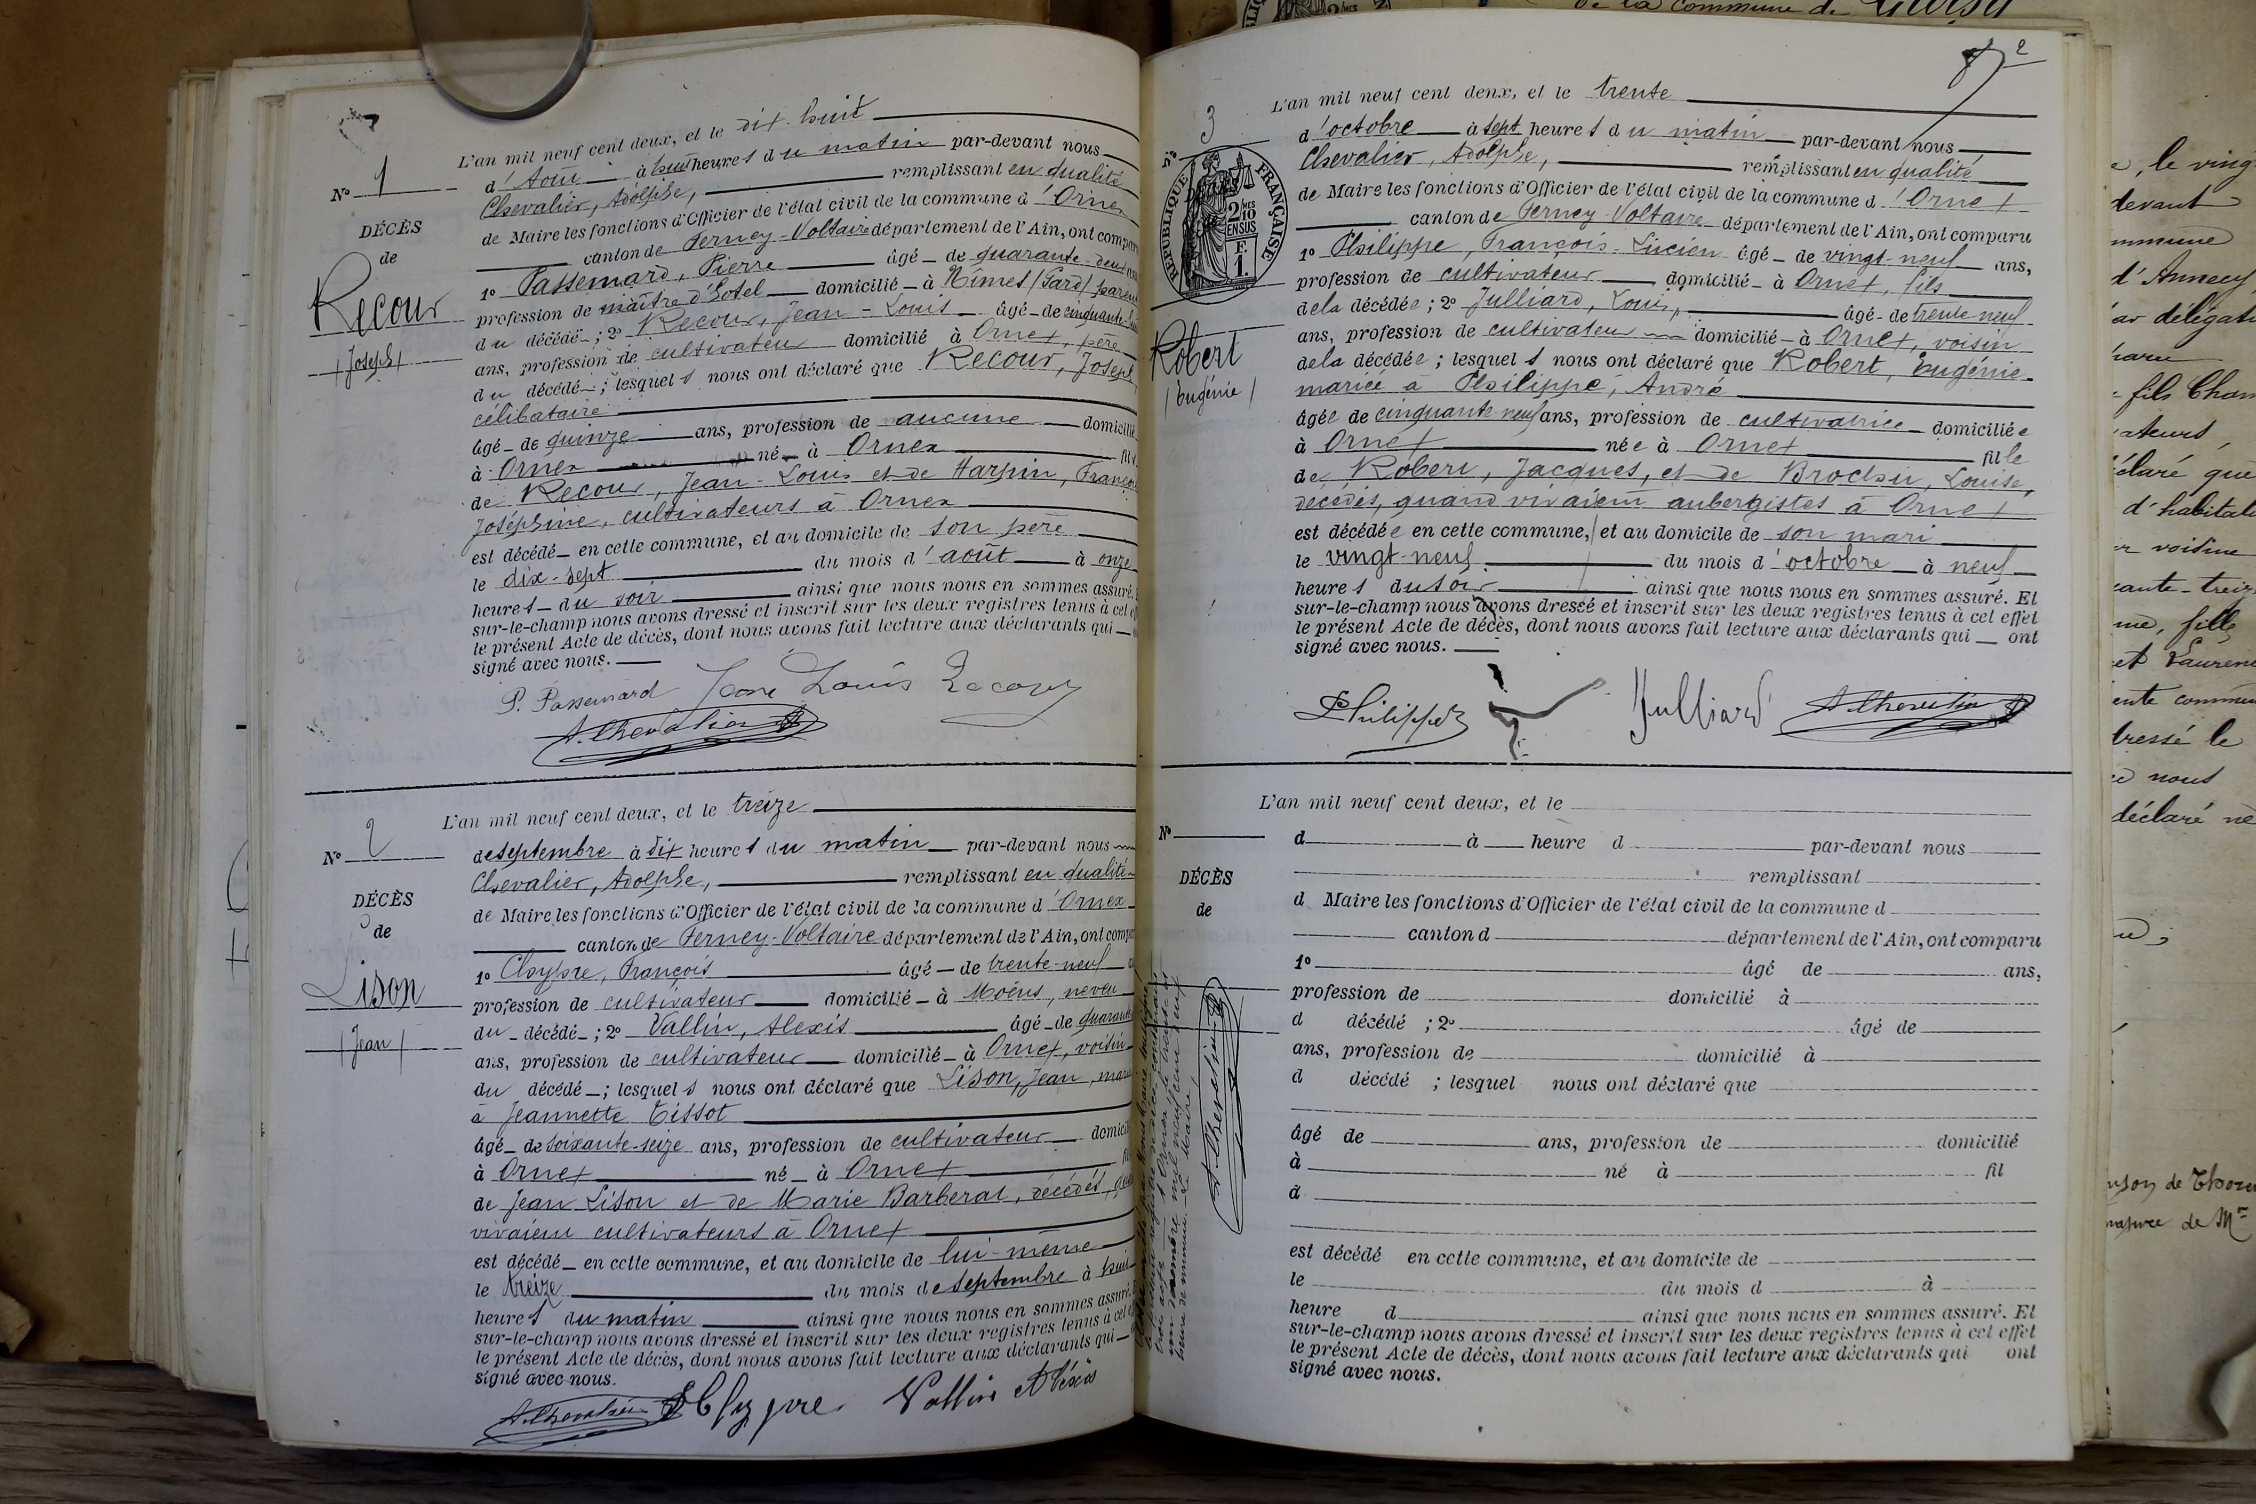 de la commune de
N° 1
DÉCÈS
de
Recour
Joseph
L'an mil neuf cent deux, et le dix-huit
d'Août à huit heures du matin par-devant nous
Chevalier, Adolphe, remplissant en qualité
de Maire les fonctions d'Officier de l'état civil de la commune d'Ornex
canton de Ferney-Voltaire département de l'Ain, ont comparu
1° Passemard, Pierre âgé de quarante-deux
profession de maître d'hôtel domicilié à Nîmes (Gard) parent
du décédé; 2° Recour, Jean-Louis âgé de cinquante
ans, profession de cultivateur domicilié à Ornex, père
du décédé; lesquels nous ont déclaré que Recour, Joseph,
célibataire
âgé de quinze ans, profession de aucune domicilié
à Ornex né à Ornex fils
de Recour, Jean-Louis et de Harpin, Françoise
Joséphine, cultivateurs à Ornex
est décédé en cette commune, et au domicile de son père
le dix-sept du mois d'août à onze
heures du soir ainsi que nous nous en sommes assuré.
sur-le-champ nous avons dressé et inscrit sur les deux registres tenus à cet
le présent Acte de décès, dont nous avons fait lecture aux déclarants qui
signé avec nous.
P. Passemard Jean Louis Recour
A. Chevalier
N° 2
DÉCÈS
de
Lison
Jean
L'an mil neuf cent deux, et le treize
de septembre à dix heures du matin par-devant nous
Chevalier, Adolphe, remplissant en qualité
de Maire les fonctions d'Officier de l'état civil de la commune d'Ornex
canton de Ferney-Voltaire département de l'Ain, ont comparu
1° Cloypre, François âgé de trente-neuf
profession de cultivateur domicilié à Moëns, neveu
du décédé; 2° Vallin, Alexis âgé de quarante
ans, profession de cultivateur domicilié à Ornex, voisin
du décédé; lesquels nous ont déclaré que Lison, Jean, marié
à Jeannette Tissot
âgé de soixante-seize ans, profession de cultivateur domicilié
à Ornex né à Ornex
de Jean Lison et de Marie Barberat, décédés, quand
vivaient cultivateurs à Ornex
est décédé en cette commune, et au domicile de lui-même
le treize du mois de septembre à huit
heures du matin ainsi que nous nous en sommes assuré.
sur-le-champ nous avons dressé et inscrit sur les deux registres tenus à cet
le présent Acte de décès, dont nous avons fait lecture aux déclarants qui
signé avec nous.
A. Chevalier Vallin Alexis
2
N° 3
RÉPUBLIQUE FRANÇAISE
2/10 MES
EN SUS
F.
1.
Robert
Eugénie
L'an mil neuf cent deux, et le trente
d'octobre à sept heures du matin par-devant nous
Chevalier, Adolphe, remplissant en qualité
de Maire les fonctions d'Officier de l'état civil de la commune d'Ornex
canton de Ferney-Voltaire département de l'Ain, ont comparu
1° Philippe, François-Lucien âgé de vingt-neuf ans,
profession de cultivateur domicilié à Ornex, fils
de la décédée; 2° Julliard, Louis, âgé de trente-neuf
ans, profession de cultivateur domicilié à Ornex, voisin
de la décédée; lesquels nous ont déclaré que Robert, Eugénie
mariée à Philippe, André
âgée de cinquante neuf ans, profession de cultivatrice domiciliée
à Ornex née à Ornex fille
de Robert, Jacques, et de Brochu, Louise,
décédés, quand vivaient aubergistes à Ornex
est décédée en cette commune, et au domicile de son mari
le vingt-neuf du mois d'octobre à neuf
heures du soir ainsi que nous nous en sommes assuré. Et
sur-le-champ nous avons dressé et inscrit sur les deux registres tenus à cet effet
le présent Acte de décès, dont nous avons fait lecture aux déclarants qui ont
signé avec nous.
Philippe Julliard A. Chevalier
N°
DÉCÈS
de
L'an mil neuf cent deux, et le
d à heure d par-devant nous
remplissant
d Maire les fonctions d'Officier de l'état civil de la commune d
canton d département de l'Ain, ont comparu
1° âgé de ans,
profession de domicilié à
d décédé ; 2° âgé de
ans, profession de domicilié à
d décédé ; lesquel nous ont déclaré que
âgé de ans, profession de domicilié
à né à fil
d
est décédé en cette commune, et au domicile de
le du mois d à
heure d ainsi que nous nous en sommes assuré. Et
sur-le-champ nous avons dressé et inscrit sur les deux registres tenus à cet effet
le présent Acte de décès, dont nous avons fait lecture aux déclarants qui ont
signé avec nous.
A. Chevalier
, le ving
devant
d'Annecy
délégat
fils Chan
ateurs,
claré que
d'habitat
voisine
ante-treiz
fille
et Laurent
ente commu
dressé le
nous
déclaré ne